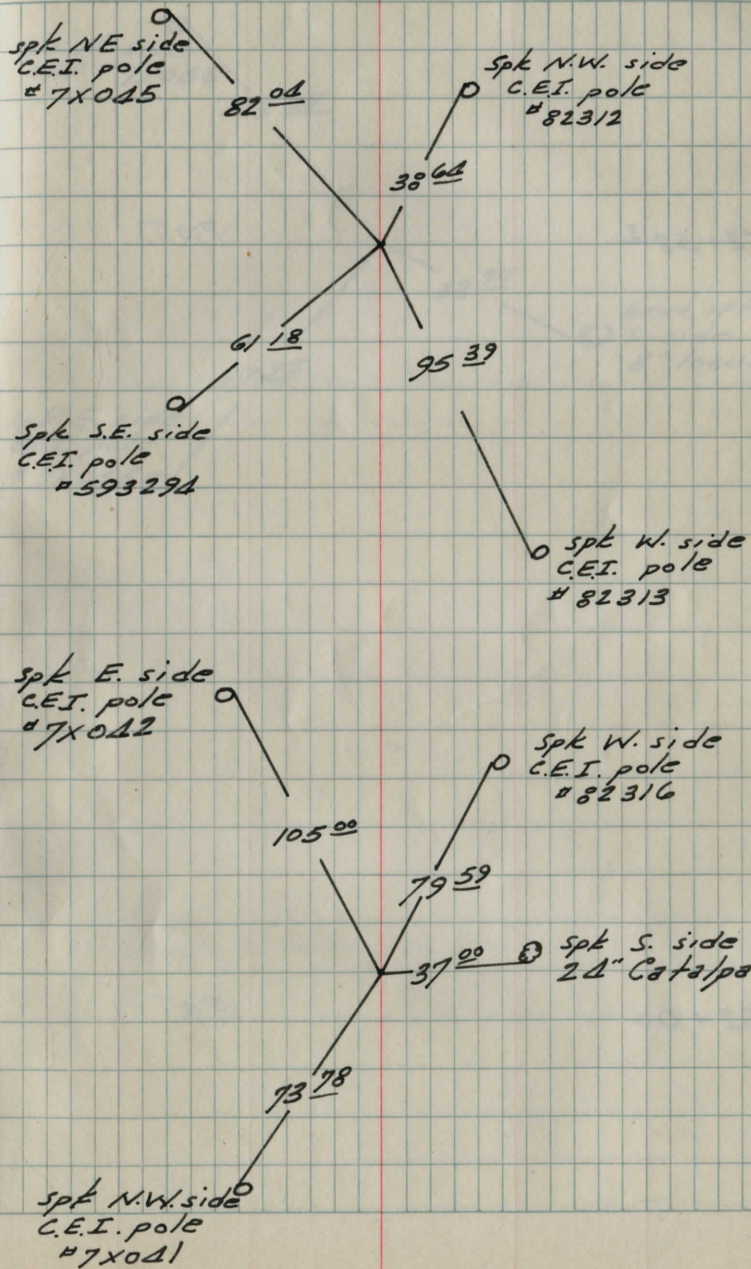 spk NE side
C.E.I. pole
#7X045
82 04
Spk N.W. side
C.E.I. pole
#82312
38 64
61 18
95 39
Spk S.E. side
C.E.I. pole
#593294
spk W. side
C.E.I. pole
#82313
Spk E. side
C.E.I. pole
#7X042
Spk W. side
C.E.I. pole
#82316
105 00
79 59
37 00
spk S. side
24" Catalpa
73 78
spk N.W. side
C.E.I. pole
#7X041